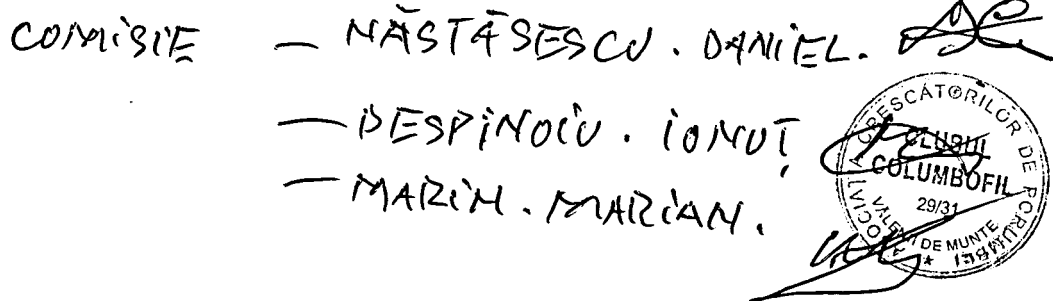 COMISIE — NĂSTĂSESCU. DANIEL.
— DESPINOIU. IONUȚ
— MARIN. MARIAN.
ASOCIAȚIA CRESCĂTORILOR DE PORUMBEI
CLUBUL
COLUMBOFIL
29/31
VĂLENI DE MUNTE